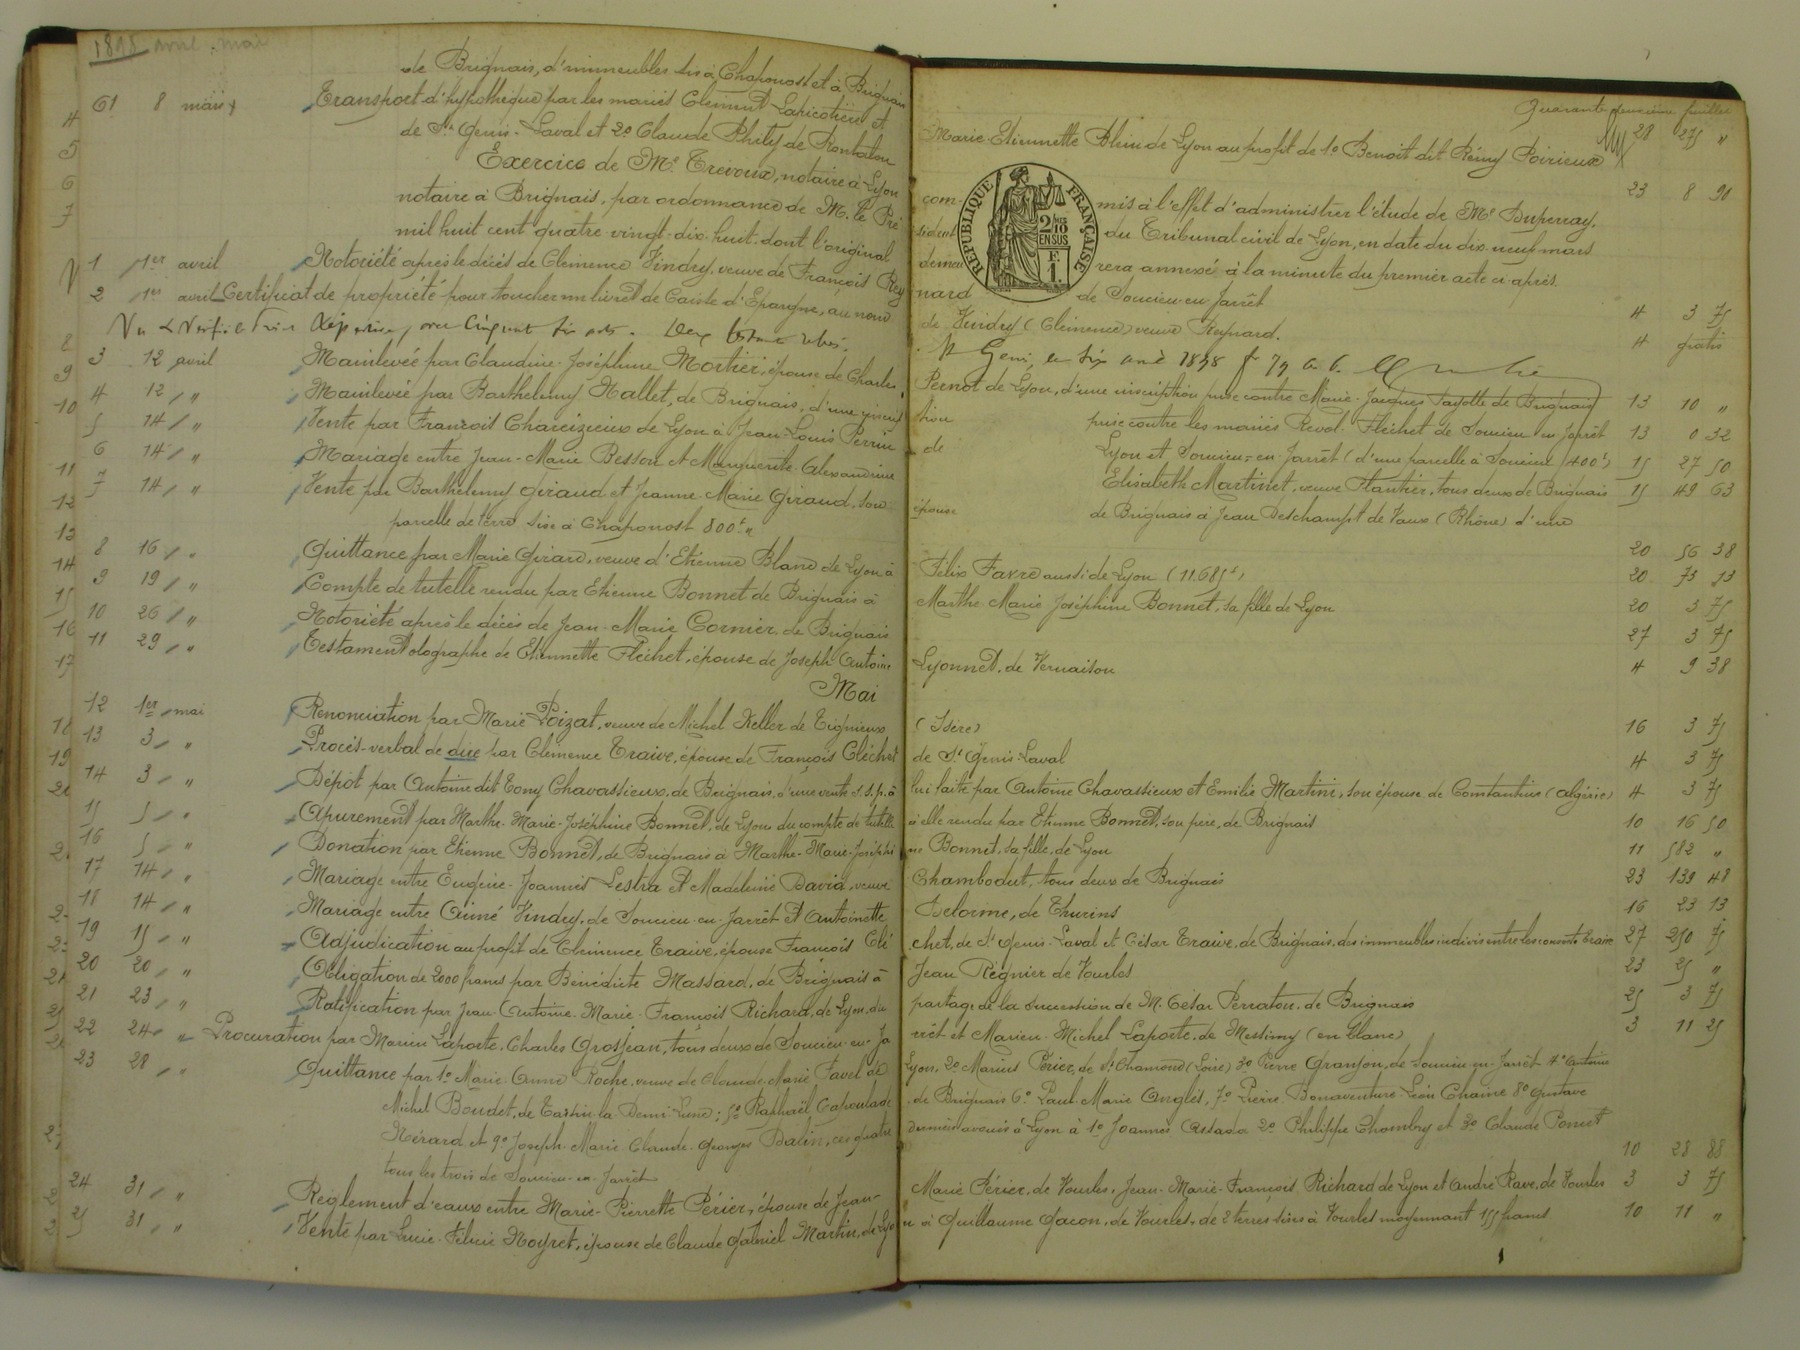 1898 avril . mai
Quarante deuxième feuillet
de Brignais, d'immeubles sis à Chaponost et à Brignais 28 275 "
61 8 mars Transport d'hypothèque par les mariés Clément Lapicotière et Marie Etiennette Blein de Lyon au profit de 1o Benoît dit Rémy Poirieux
de St Genis-Laval et 2o Claude Phily de Rontalon 23 8 90
Exercice de Me Trevoux, notaire à Lyon commis à l'effet d'administrer l'étude de Me Duperray,
notaire à Brignais, par ordonnance de M. le Président du Tribunal civil de Lyon, en date du dix neuf mars
mil huit cent quatre-vingt-dix-huit dont l'original demeurera annexé à la minute du premier acte ci-après.
RÉPUBLIQUE FRANÇAISE 2/10 EN SUS 1 F.
1 1er avril Notoriété après le décès de Clémence Vindry, veuve de François Reynard de Soucieu-en-Jarrêt 4 3 75
2 1er avril Certificat de propriété pour toucher un livret de Caisse d'Epargne, au nom de Vindry (Clémence) veuve Reynard. 4 gratis
Vu & Vérifié St Genis, le six avril 1898
3 12 avril Mainlevée par Claudine-Joséphine Mortier, épouse de Charles Pernot de Lyon, d'une inscription prise contre Marie-Jacques Payotte de Brignais 13 10 "
4 12 " Mainlevée par Barthelemy Hallet, de Brignais, d'une inscription prise contre les mariés Revol-Fléchet de Soucieu-en-Jarrêt 13 0 32
5 14 " Vente par François Charcizieux de Lyon à Jean-Louis Perrin de Lyon et Soucieu-en-Jarrêt (d'une parcelle à Soucieu 400f) 15 27 50
6 14 " Mariage entre Jean-Marie Besson et Marguerite-Alexandrine Elisabeth Martinet, veuve Flantier, tous deux de Brignais 15 49 63
7 14 " Vente par Barthélemy Giraud et Jeanne-Marie Giraud, son épouse de Brignais à Jean Deschampt de Vaux (Rhône) d'une
parcelle de terre sise à Chaponost 800f " 20 56 38
8 16 " Quittance par Marie Girard, veuve d'Etienne Blanc de Lyon à Félix Favre aussi de Lyon (11.685f) 20 73 13
9 19 " Compte de tutelle rendu par Etienne Bonnet de Brignais à Marthe-Marie-Joséphine Bonnet, sa fille de Lyon 20 3 75
10 26 " Notoriété après le décès de Jean-Marie Cornier de Brignais 27 3 75
11 29 " Testament olographe de Etiennette Fléchet, épouse de Joseph-Antoine Lyonnet, de Vernaison 4 9 38
Mai
12 1er mai Renonciation par Marie Poizat, veuve de Michel Keller de Tignieux (Isère) 16 3 75
13 3 " Procès-verbal de dire par Clémence Traive, épouse de François Cléchet de St Genis-Laval 4 3 75
14 3 " Dépôt par Antoine dit Tony Chavassieux, de Brignais, d'une vente s.s.p. à lui faite par Antoine Chavassieux et Emilie Martini, son épouse de Constantine (Algérie) 4 3 75
15 5 " Apurement par Marthe-Marie-Joséphine Bonnet, de Lyon du compte de tutelle à elle rendu par Etienne Bonnet, son père, de Brignais 10 16 50
16 5 " Donation par Etienne Bonnet, de Brignais à Marthe-Marie-Joséphine Bonnet, sa fille, de Lyon 11 582 "
17 14 " Mariage entre Eugène-Joannès Lestra et Madeleine David, veuve Chambodut, tous deux de Brignais 23 139 48
18 14 " Mariage entre Aimé Vindry, de Soucieu-en-Jarrêt et Antoinette Delorme, de Thurins 16 23 13
19 15 " Adjudication au profit de Clémence Traive, épouse François Cléchet, de St Genis-Laval et César Traive, de Brignais, des immeubles indivis entre les consorts Traive 27 250 75
20 20 " Obligation de 2000 francs par Bénédicte Massard, de Brignais à Jean Régnier de Vourles 23 25 "
21 23 " Ratification par Jean-Antoine-Marie-François Richard, de Lyon, du partage de la succession de M. César Perraton, de Brignais 25 3 75
22 24 " Procuration par Marien Laporte, Charles Grosjean, tous deux de Soucieu-en-Jarrêt et Marien-Michel Laporte, de Messimy (en blanc) 3 11 25
23 28 " Quittance par 1o Marie-Anne Roche, veuve de Claude-Marie Favel de Lyon, 2o Marius Périer, de St Chamond (Loire) 3o Pierre Granjon, de Soucieu-en-Jarrêt 4o Antoine
Michel Boudet, de Tassin-la-Demi-Lune; 5o Raphaël Capoulade de Brignais 6o Paul Marie Anglès, 7o Pierre Bonaventure-Léon Chaine 8o Gustave
Hérard et 9o Joseph-Marie-Claude-Georges Balin, ces quatre derniers avoués à Lyon à 1o Joannès Astada 2o Philippe Chambry et 3o Claude Poncet
tous les trois de Soucieu-en-Jarrêt 10 28 88
24 31 " Règlement d'eaux entre Marie-Pierrette Périer, épouse de Jean-Marie Périer, de Vourles, Jean-Marie-François Richard de Lyon et André Rave, de Vourles 3 3 75
25 31 " Vente par Lucie-Félicie Noyret, épouse de Claude Gabriel Martin, de Lyon à Guillaume Gacon, de Vourles, de 2 terres sises à Vourles moyennant 155 francs 10 11 "